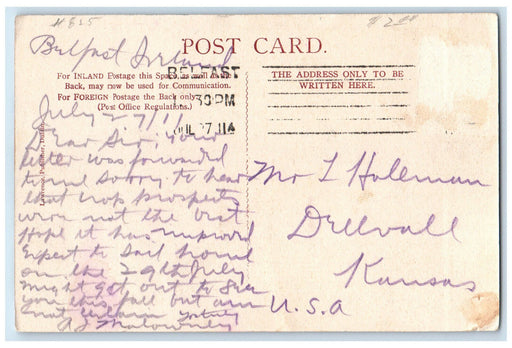 # 625
$2.00
Belfast Ireland
POST CARD.
For INLAND Postage this Space, as well as the
Back, may now be used for Communication.
For FOREIGN Postage the Back only.
(Post Office Regulations.)
THE ADDRESS ONLY TO BE
WRITTEN HERE.
BELFAST
30PM
JUL 27 11
Lawrence, Publisher, Dublin.
July 27/11
Dear Sir; Your
letter was forwarded
to me sorry to hear
that crop prospects
were not the best
Hope it has improved
Expect to sail home
on the 29th July
Might get out to see
you this fall but am
not certain
Mr L Holeman
Kansas
U.S.A